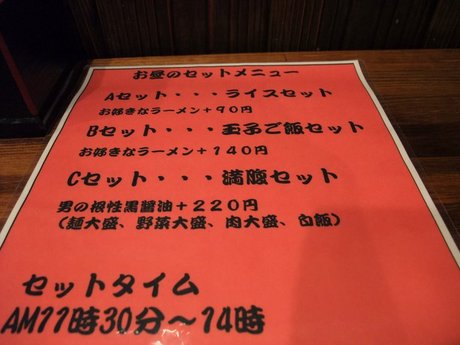 お昼のセットメニュー
Aセット・・・ライスセット
お好きなラーメン＋９０円
Bセット・・・玉子ご飯セット
お好きなラーメン＋１４０円
Cセット・・・満腹セット
男の根性黒醤油＋２２０円
（麺大盛、野菜大盛、肉大盛、白飯）
セットタイム
AM11時30分～14時